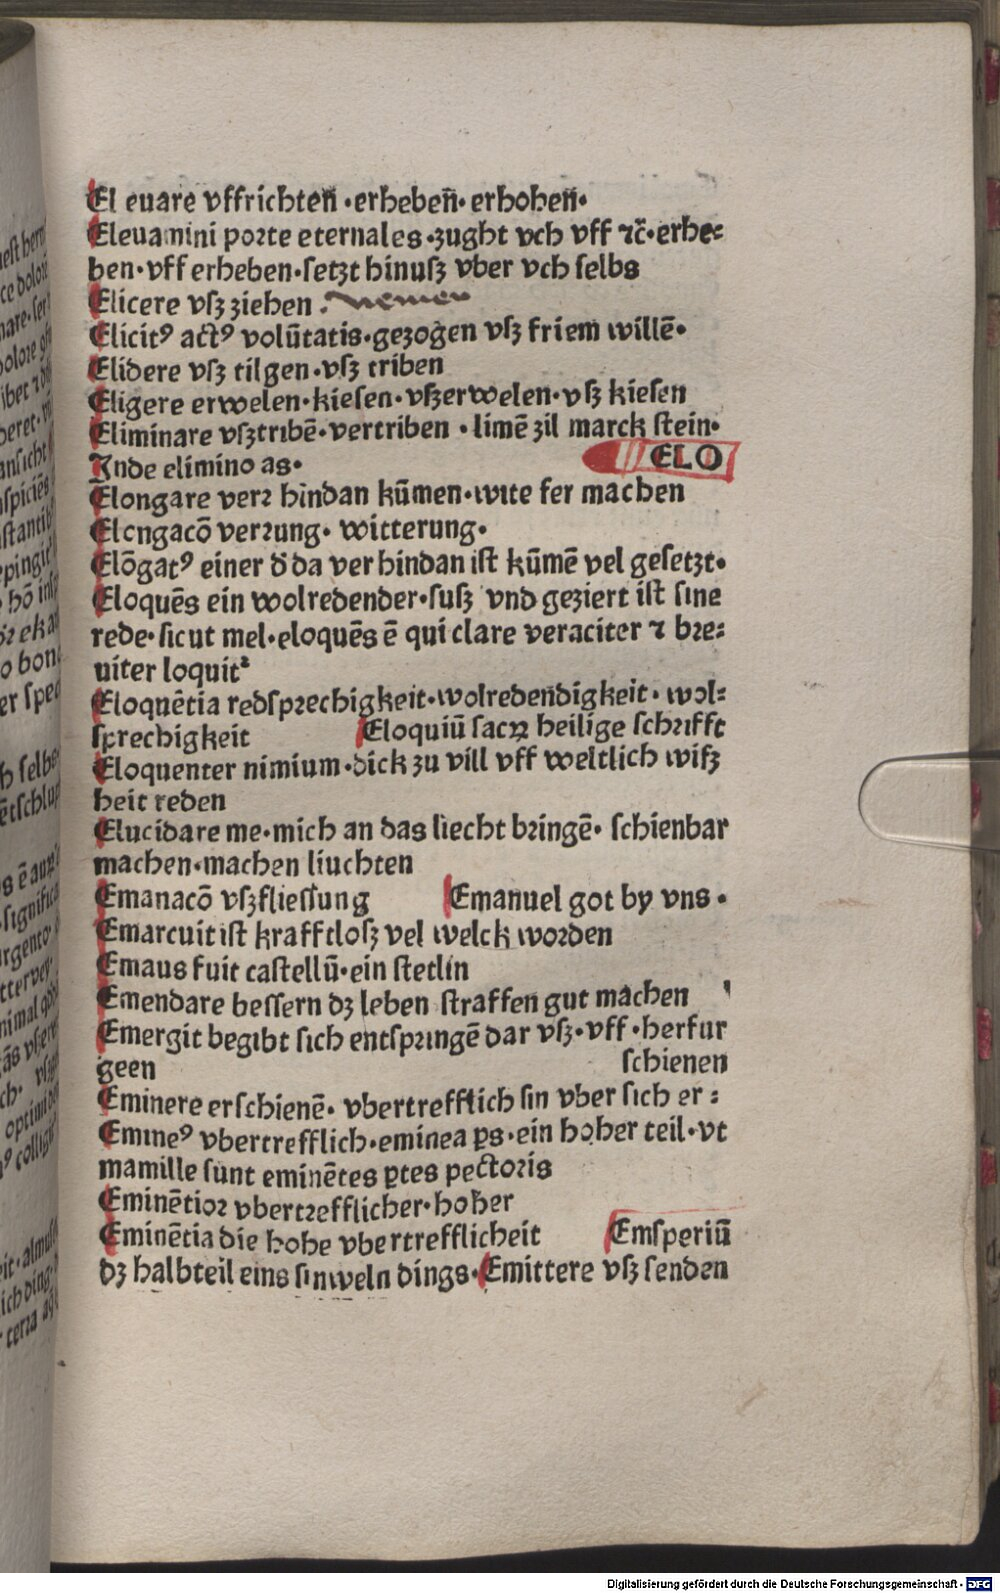 El euare vffrichten̄ ·erheben̄· erhohen̄·
Eleuamini porte eternales ·zught vch vff ⁊c̄·erhe⸗
ben·vff erheben·ſetzt hinuſz vber vch ſelbs
Elicere vſz ziehen · nemen
Elicitꝰ actꝰ volūtatis·gezogen vſz friem willē·
Elidere vſz tilgen·vſz triben
Eligere erwelen·kieſen·vſzerwelen·vſz kieſen
Eliminare vſztribē·vertriben ·limē zil marck ſtein·
Inde elimino as·
ELO
Elongare verꝛ hindan kūmen·wite fer machen
Elongacō verꝛung· witterung·
Elōgatꝰ einer d̄ da ver hindan iſt kūmē vel geſetzt·
Eloquēs ein wolredender·ſuſz vnd geziert iſt ſine
rede·ſicut mel·eloquēs ē qui clare veraciter ⁊ bꝛe⸗
uiter loquit᷑
Eloquētia redſpꝛechigkeit·wolredendigkeit·wol⸗
ſprechigkeit Eloquiū ſacꝝ heilige ſchꝛifft
Eloquenter nimium·dick zu vill vff weltlich wiſz
heit reden
Elucidare me·mich an das liecht bꝛingē· ſchienbar
machen·machen liuchten
Emanacō vſzflieſſung Emanuel got by vns ·
Emarcuit iſt krafftloſz vel welck woꝛden
Emaus fuit caſtellū·ein ſtetlin
Emendare beſſern dz leben ſtraffen gut machen
Emergit begibt ſich entſpꝛingē dar vſz·vff·herfur
geen ſchienen
Eminere erſchienē· vbertrefflich ſin vber ſich er⸗
Emineꝰ vbertrefflich·eminea ꝑs·ein hoher teil·vt
mamille ſunt eminētes ꝑtes pectoꝛis
Eminētioꝛ vbertꝛefflicher·hoher
Eminētia die hohe vbertrefflicheit Emſperiū
dz halbteil eins ſinweln dings·Emittere vſz ſenden
Digitalisierung gefördert durch die Deutsche Forschungsgemeinschaft - DFG